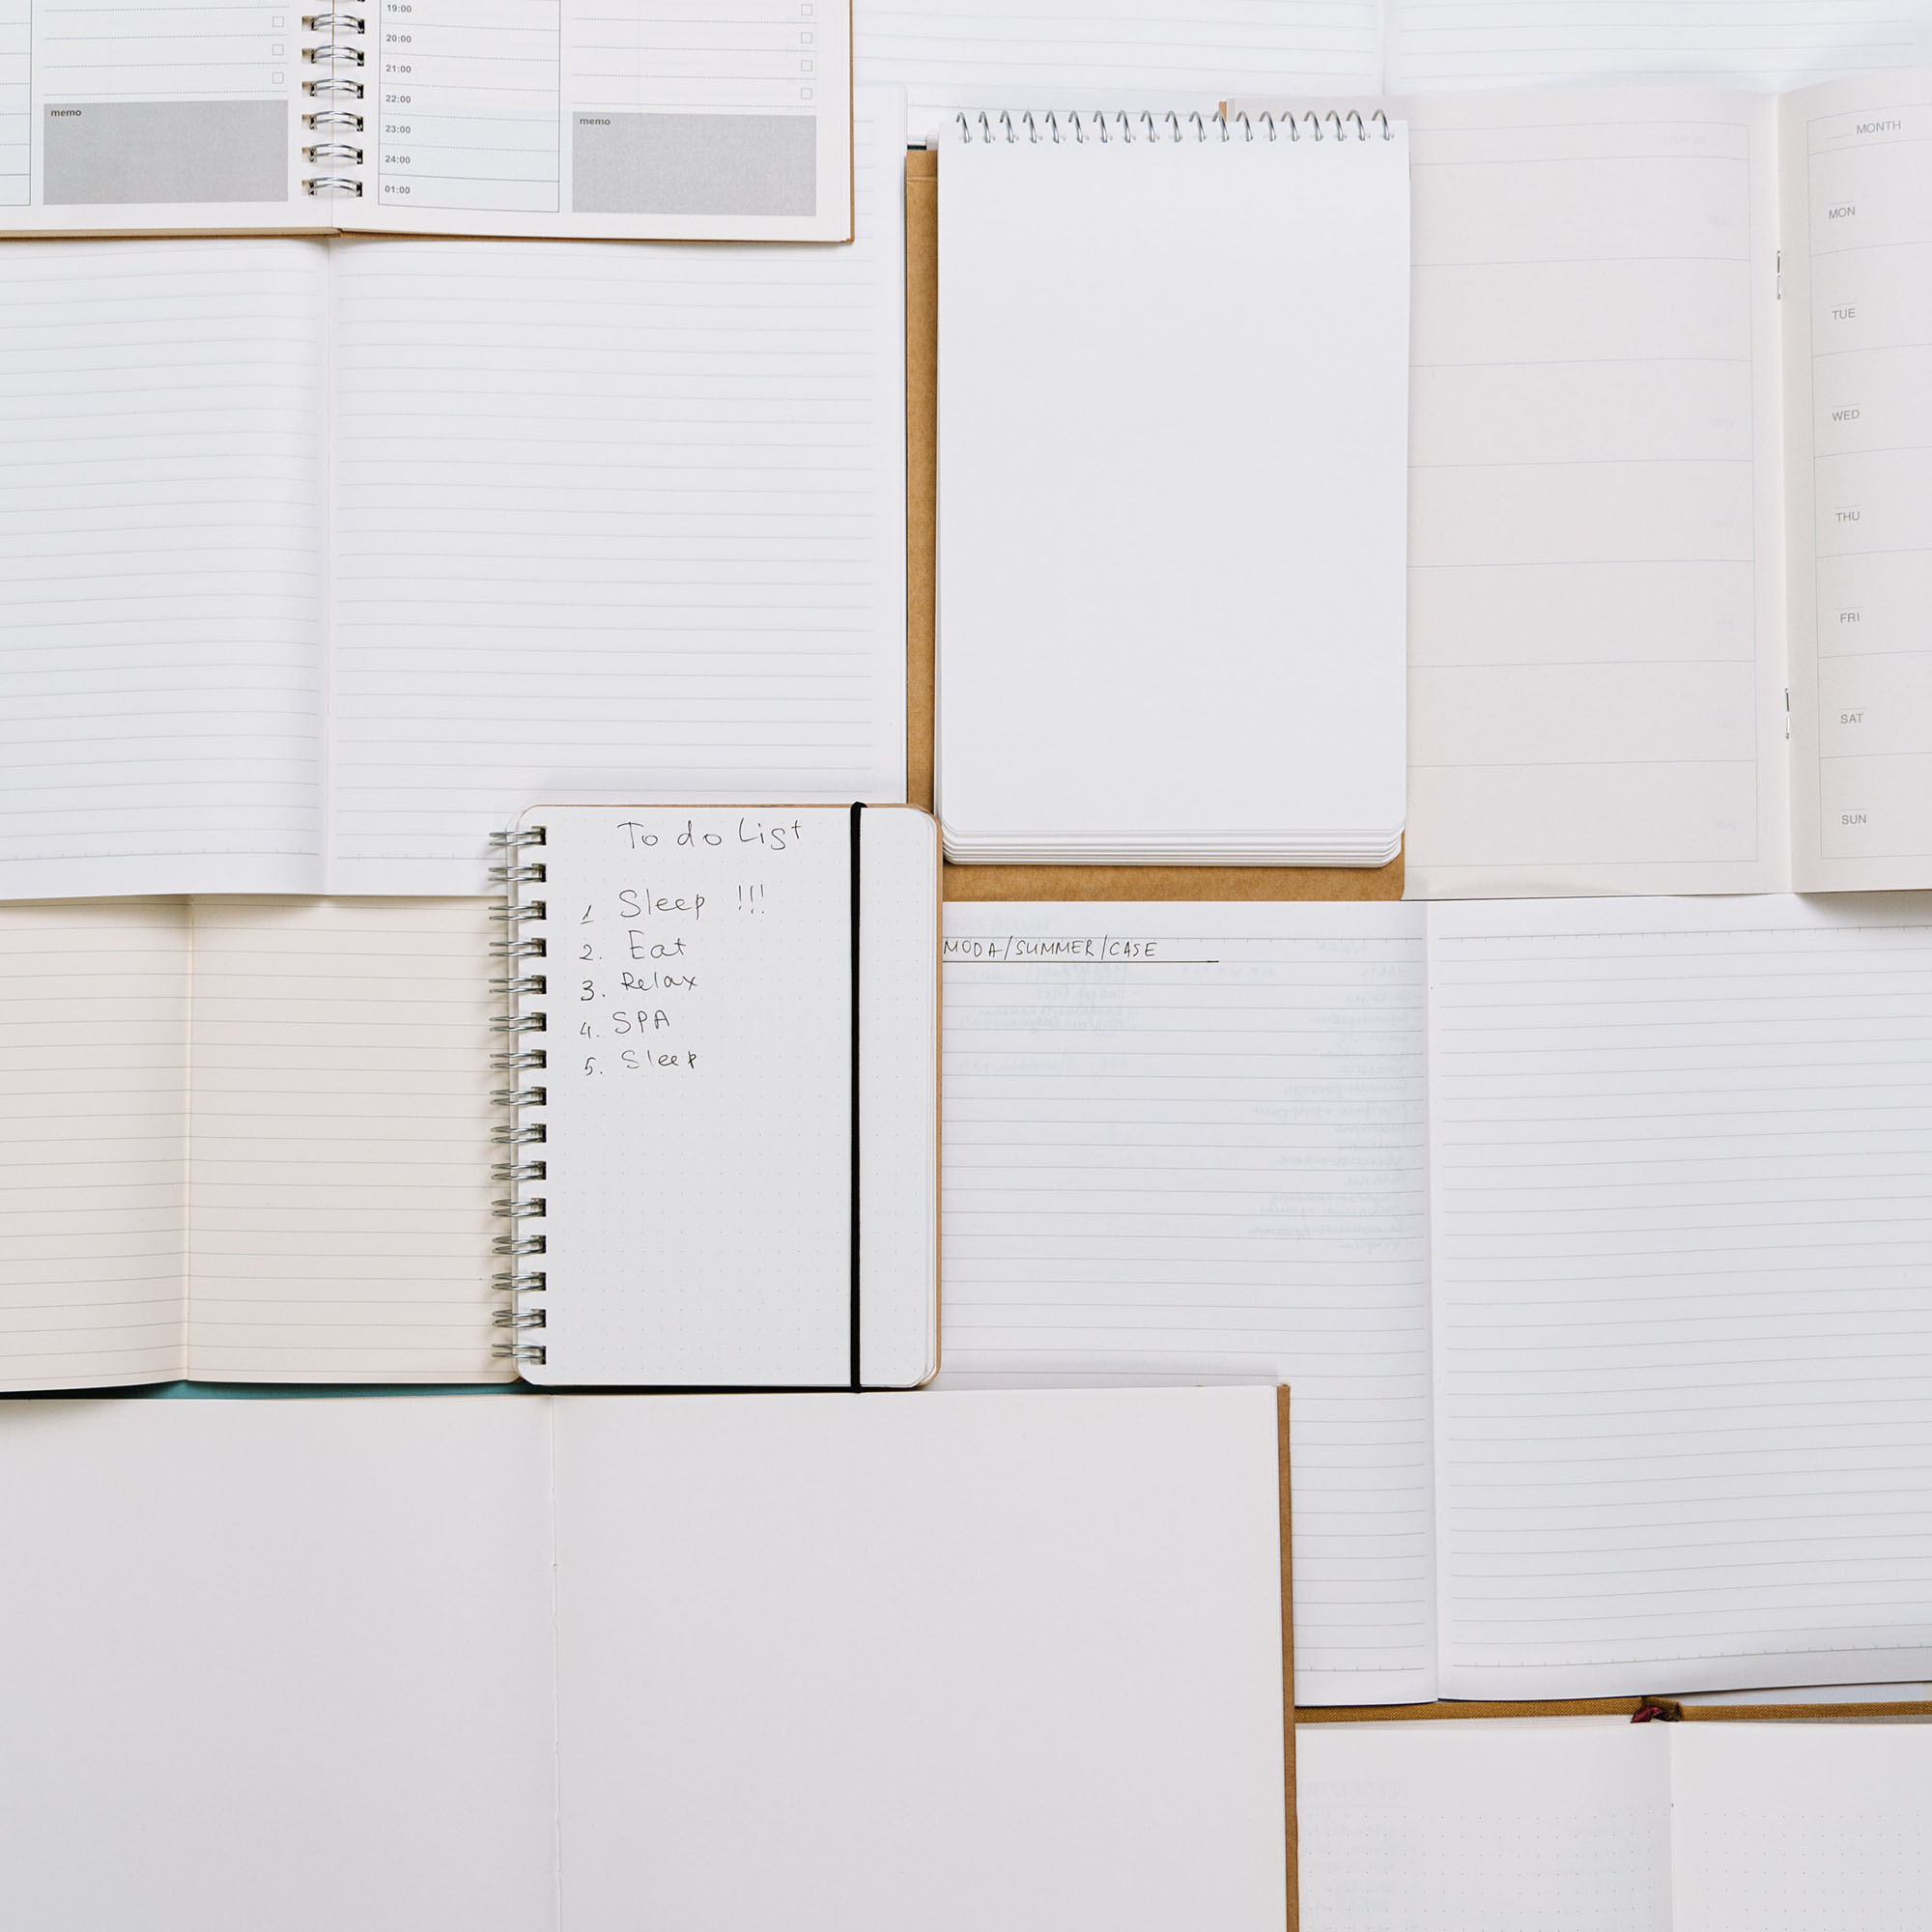 19:00
20:00
21:00
22:00
23:00
24:00
01:00
memo
memo
MONTH
MON
TUE
WED
THU
FRI
SAT
SUN
To do List
1 Sleep !!!
2. Eat
3. Relax
4. SPA
5. Sleep
MODA/SUMMER/CASE